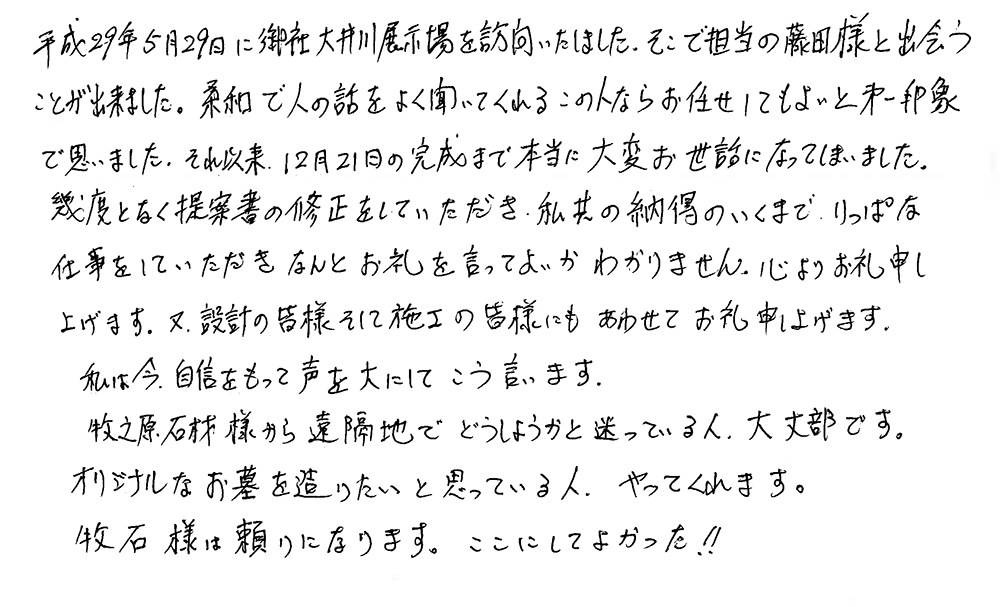 平成29年5月29日に御社大井川展示場を訪問いたしました.そこで担当の藤田様と出会う
ことが出来ました。柔和で人の話をよく聞いてくれるこの人ならお任せしてもよいと第一印象
で思いました.それ以来.12月21日の完成まで本当に大変お世話になってしまいました。
幾度となく提案書の修正をしていただき.私共の納得のいくまで.りっぱな
仕事をしていただきなんとお礼を言ってよいかわかりません。心よりお礼申し
上げます.又.設計の皆様そして施工の皆様にもあわせてお礼申し上げます.
私は今.自信をもって声を大にしてこう言います.
牧之原石材様から遠隔地でどうしようかと迷っている人.大丈部です。
オリジナルなお墓を造りたいと思っている人.やってくれます。
牧石様は頼りになります。ここにしてよかった!!